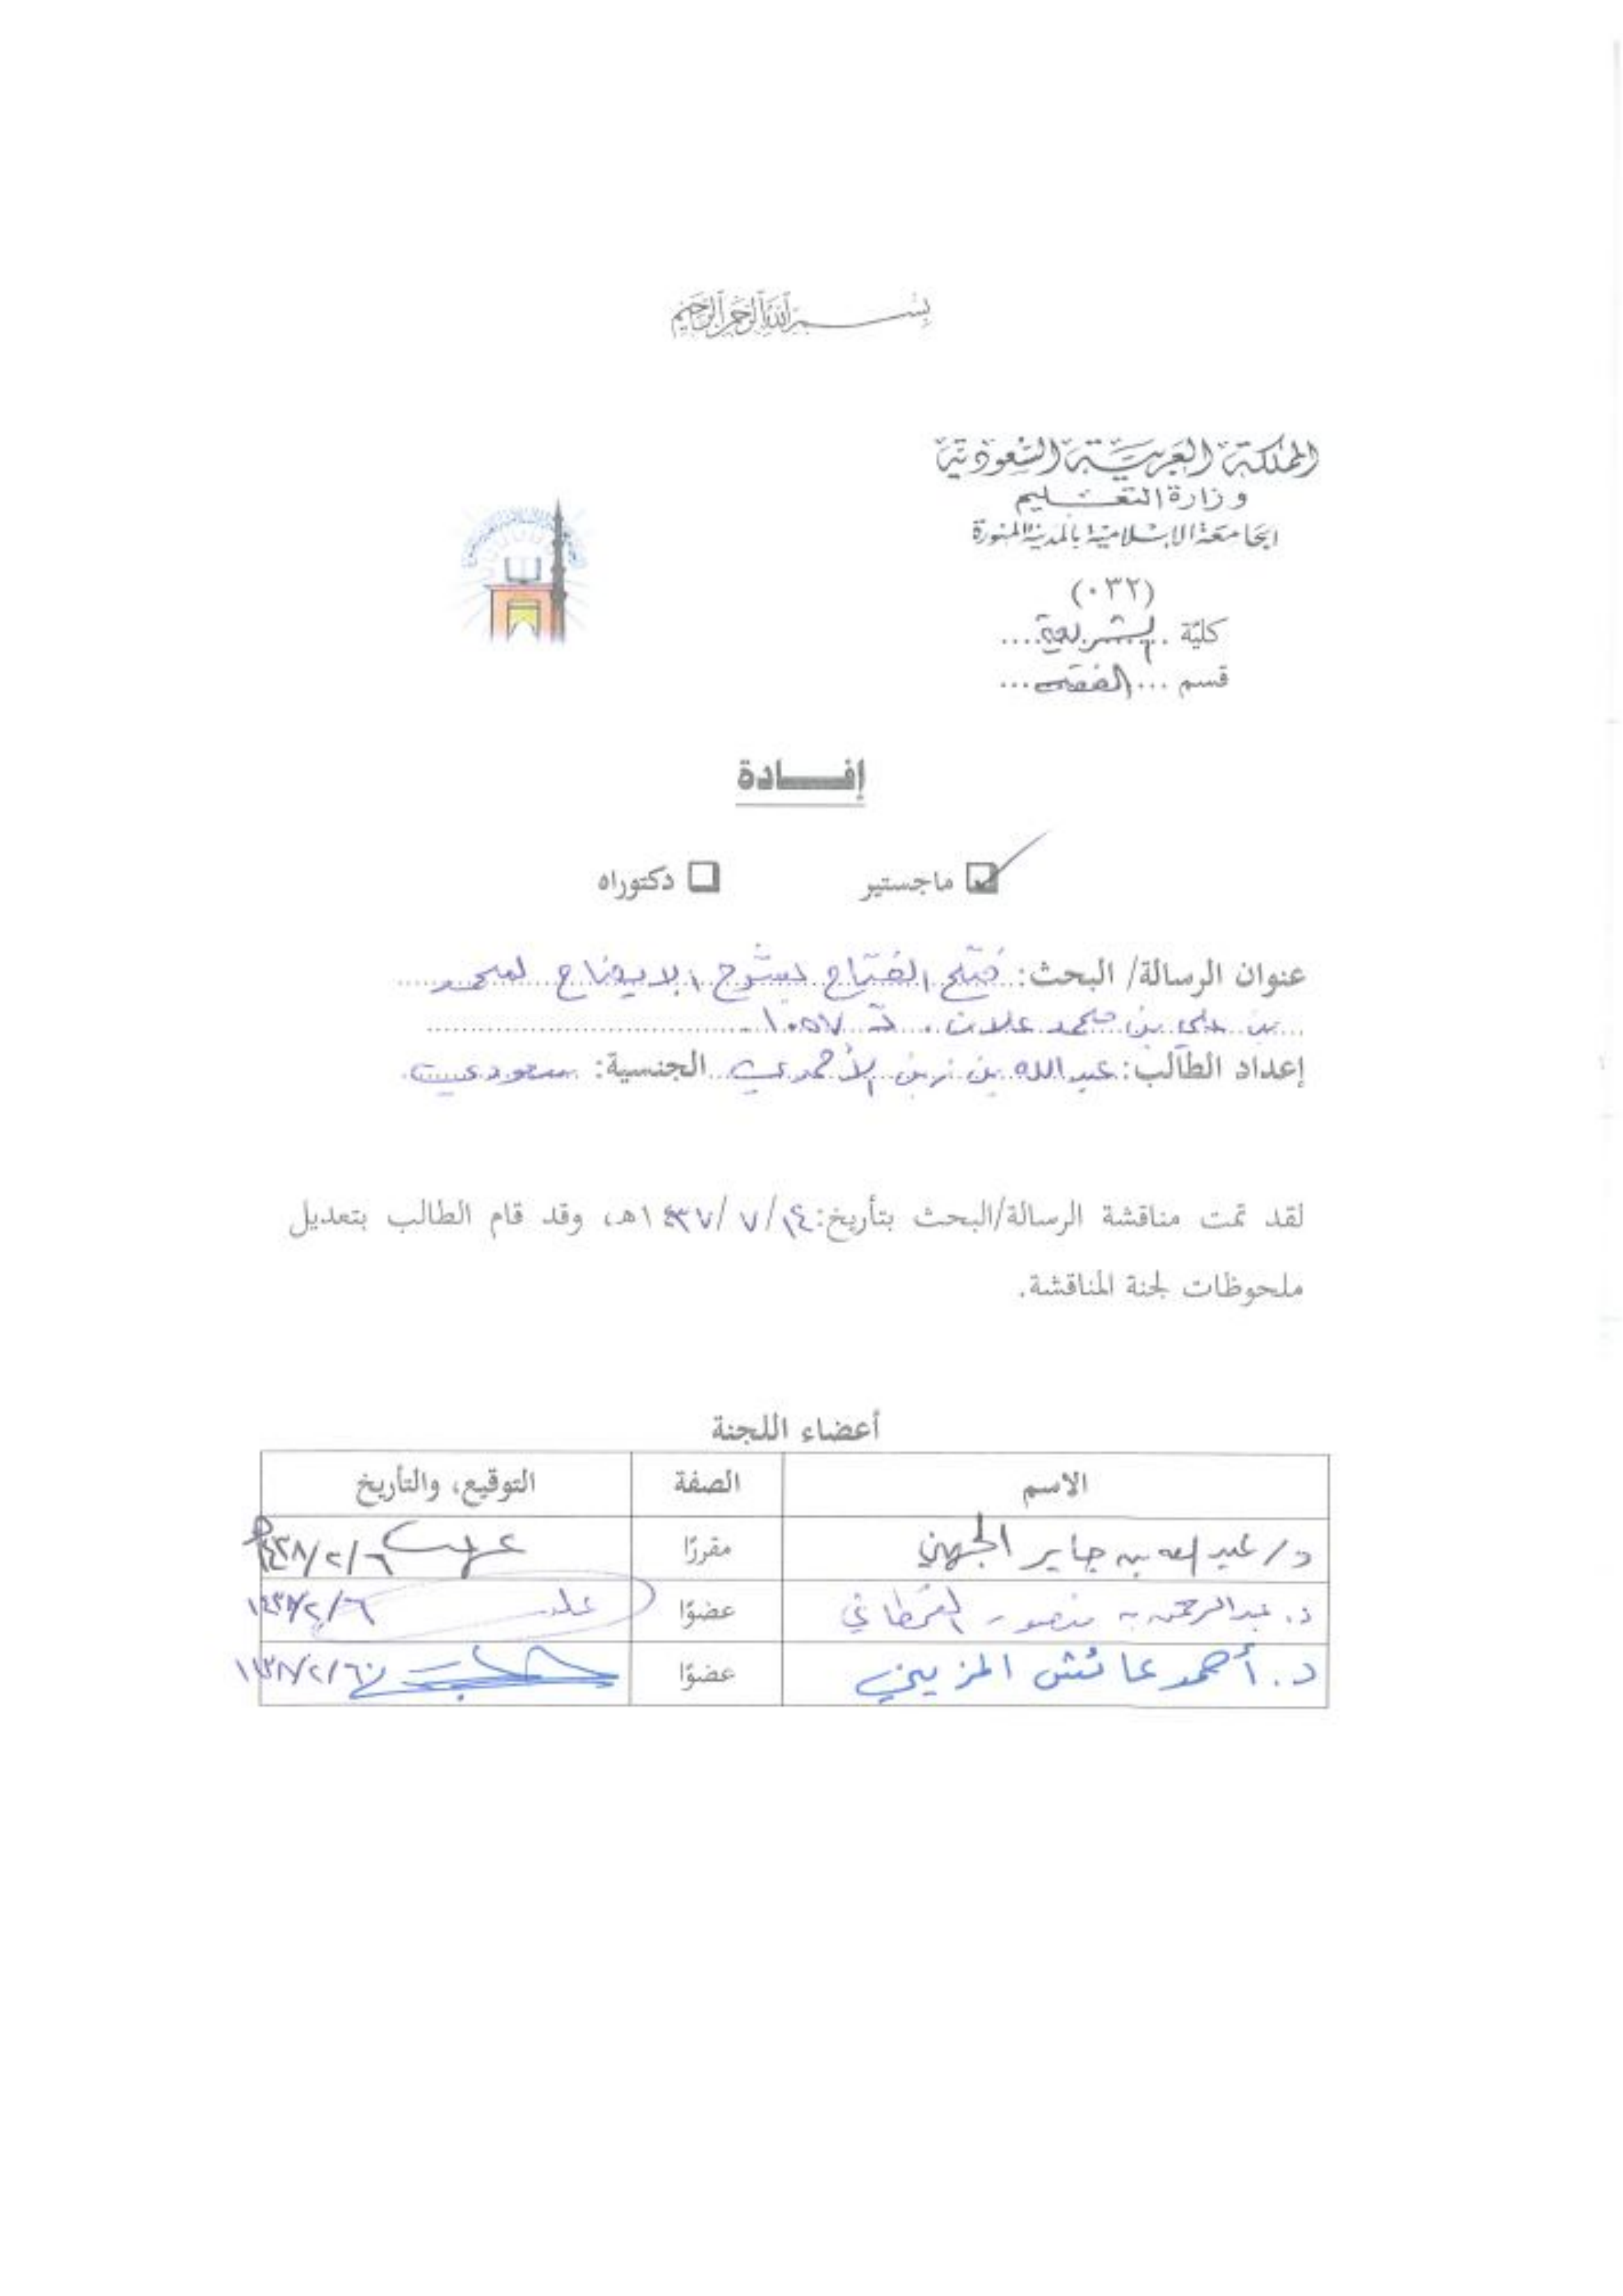 بسم الله الرحمن الرحيم
المملكة العربية السعودية
وزارة التعليم
الجامعة الإسلامية بالمدينة المنورة
(٠٣٢)
كليّة ..الشريعة....
قسم ...الفقه...
إفــادة
ماجستير دكتوراه
عنوان الرسالة/ البحث: فتح الفتاح بشرح الإيضاح لمحمد
بن علي بن محمد علان. ت ١٠٥٧
إعداد الطالب: عبدالله بن زبن الأحمدي الجنسية: سعودي
لقد تمت مناقشة الرسالة/البحث بتأريخ: ١٤/ ٧/ ١٤٣٧هـ، وقد قام الطالب بتعديل
ملحوظات لجنة المناقشة.
أعضاء اللجنة
الاسم الصفة التوقيع، والتأريخ
د/ عبد الله بن جابر الجهني مقررًا ١٤٣٨/٢/٦
د. عبدالرحمن بن منصور القحطاني عضوًا ١٤٣٨/٢/٦
د. أحمد عائش المزيني عضوًا ١٤٣٨/٢/٦